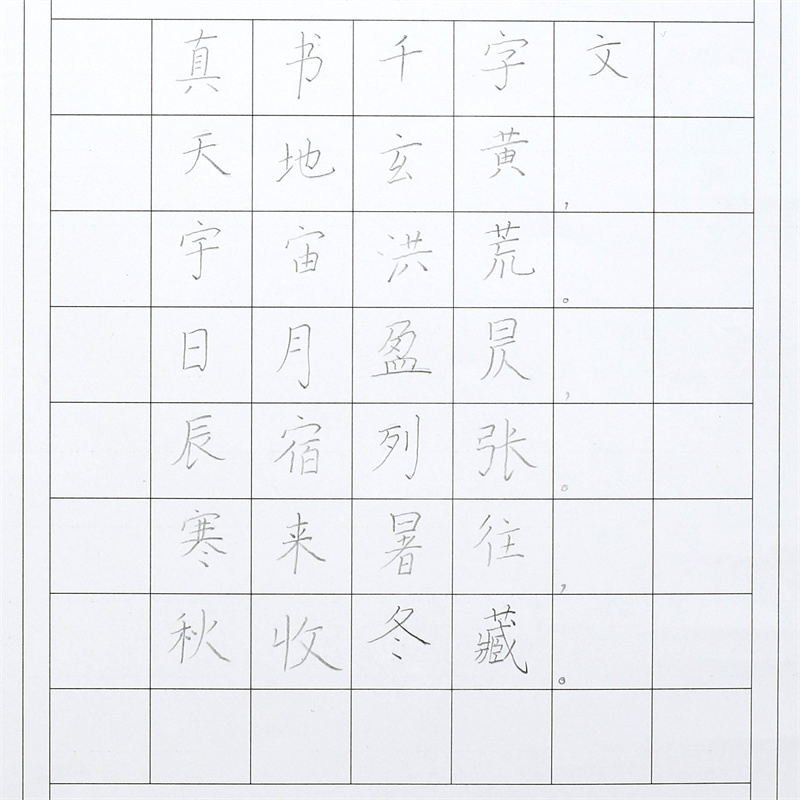 真书千字文
天地玄黄，
宇宙洪荒。
日月盈昃，
辰宿列张。
寒来暑往，
秋收冬藏。